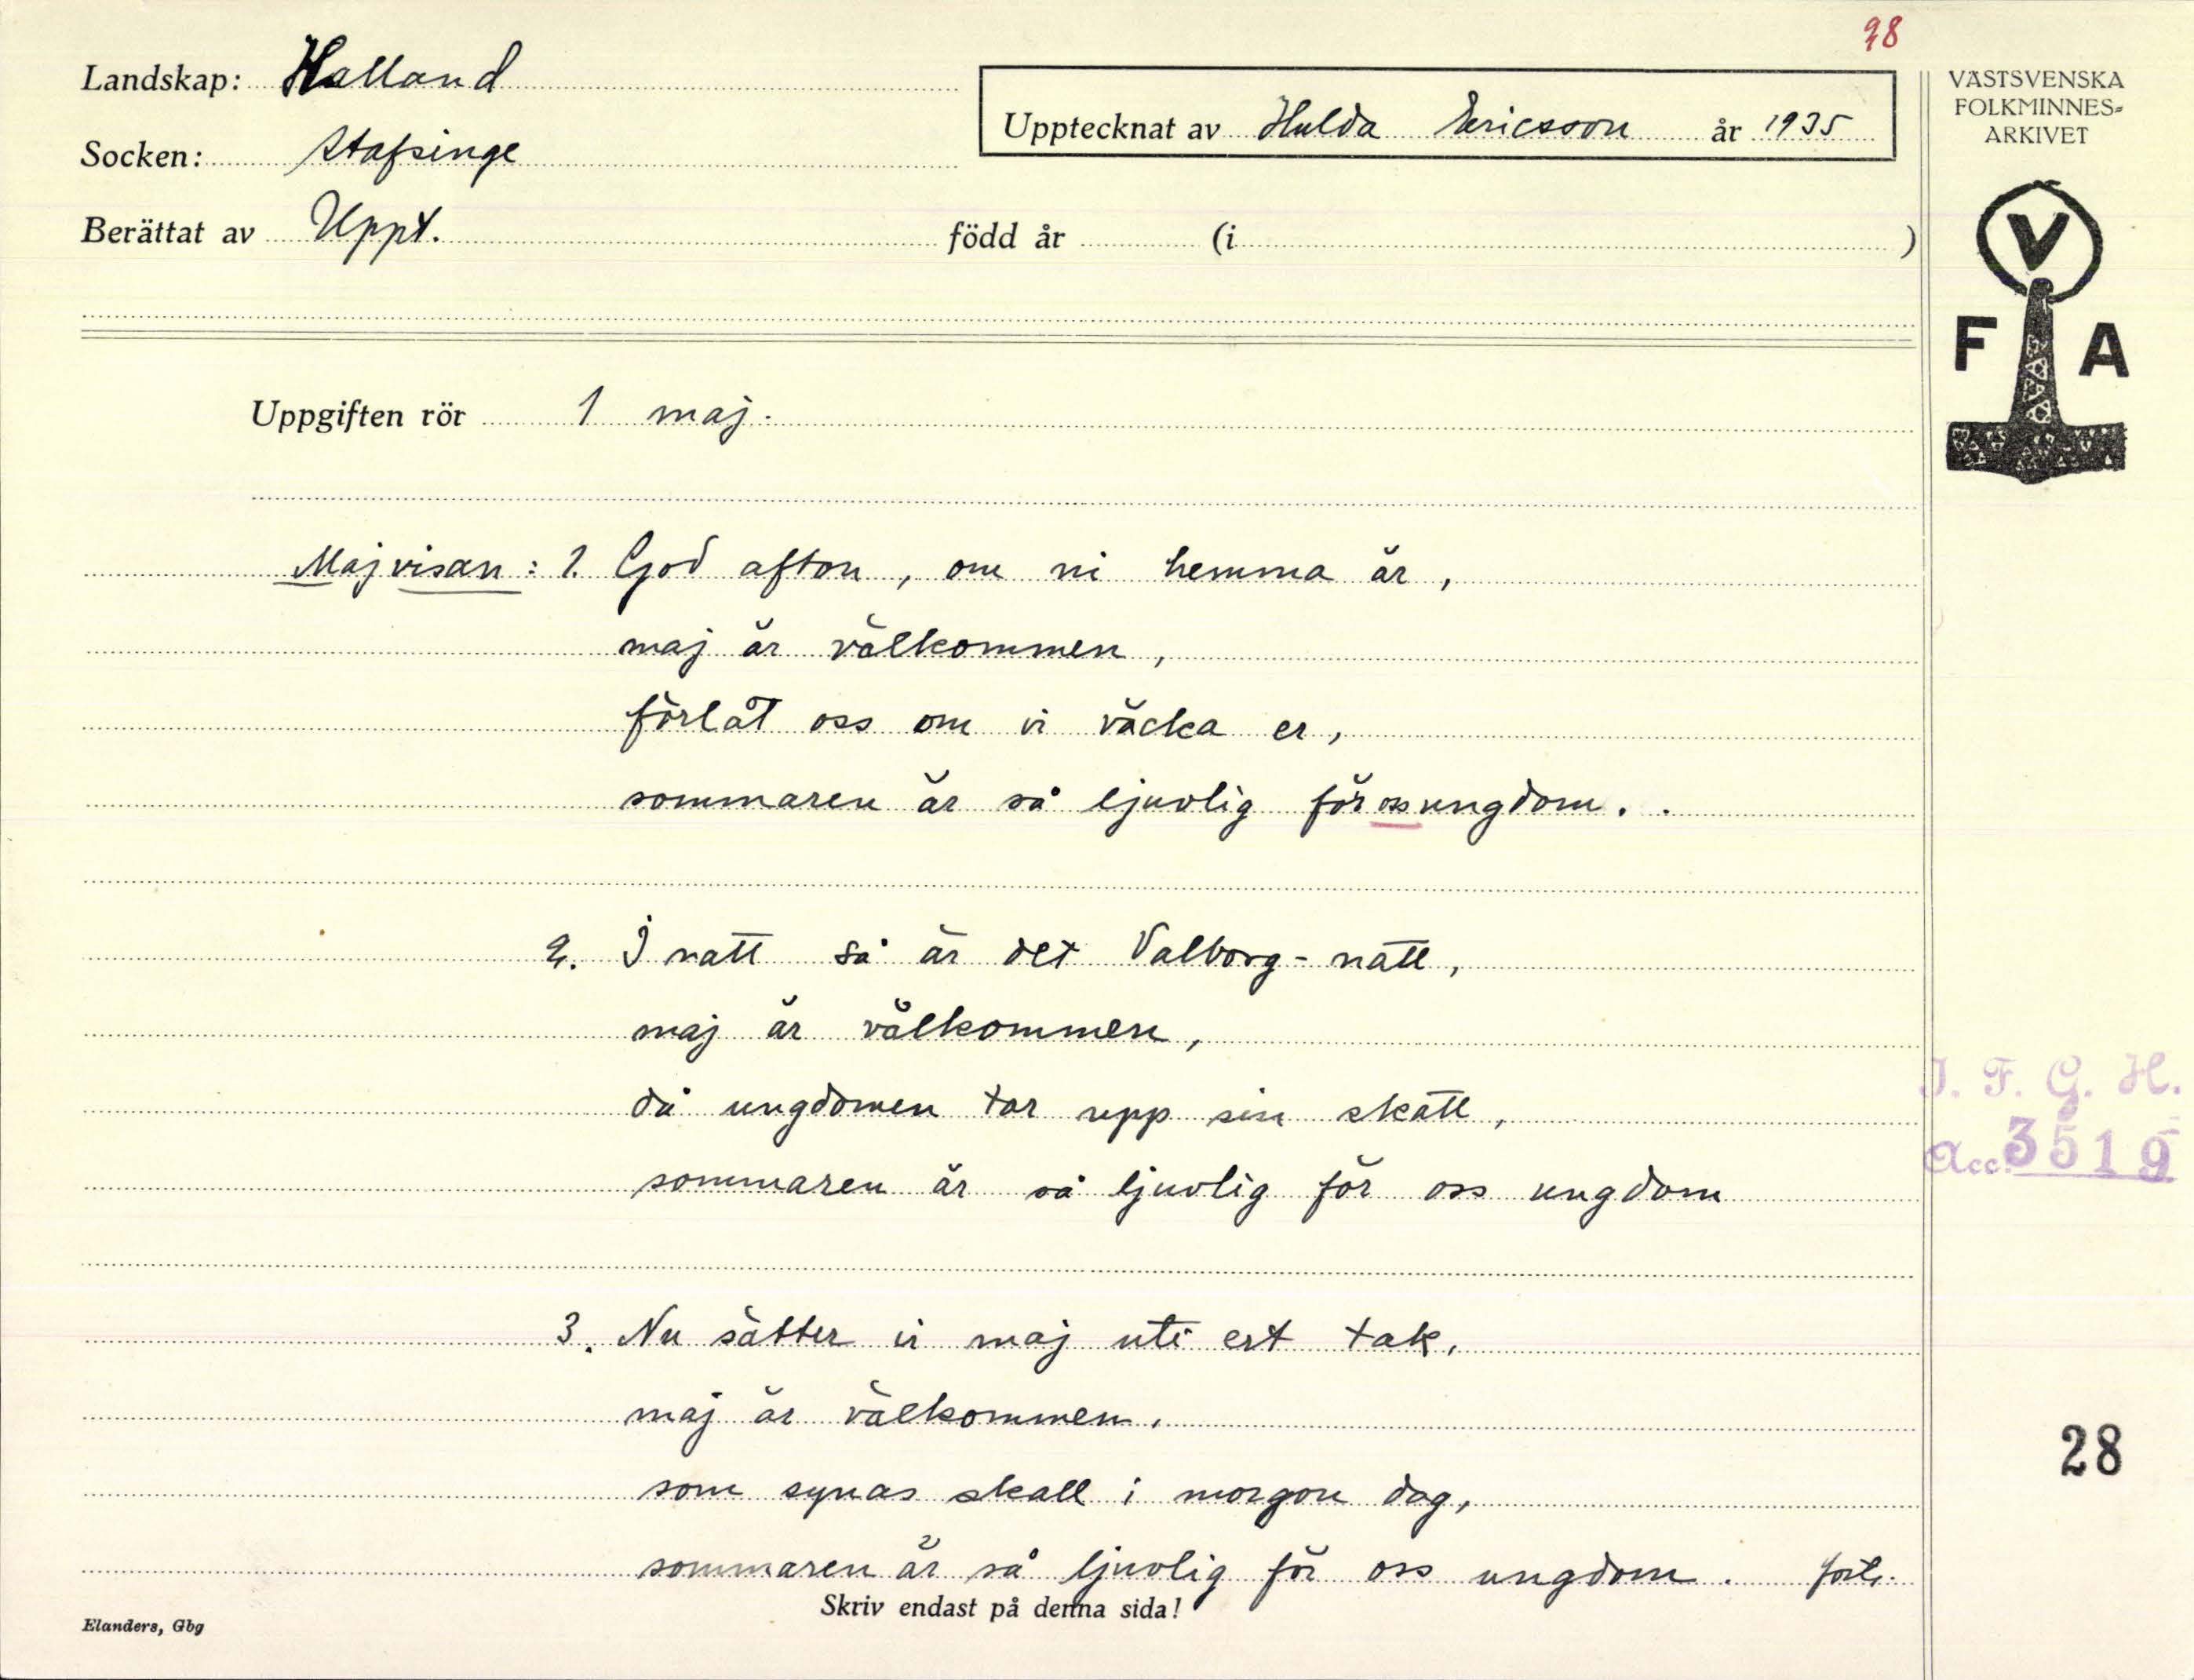 98
Landskap: Halland
Upptecknat av Hulda Ericsson år 1935
Socken: Stafsinge
Berättat av Uppt. född år (i )
VÄSTSVENSKA
FOLKMINNES-
ARKIVET
V
F A
Uppgiften rör 1 maj.
Majvisan: 1. God afton, om ni hemma är,
maj är välkommen,
förlåt oss om vi väcka er,
sommaren är så ljuvlig för oss ungdom..
2. I natt så är det Valborg-natt,
maj är välkommen,
då ungdomen tar upp sin skatt,
sommaren är så ljuvlig för oss ungdom
I. F. G. H.
Acc. 3519
3. Nu sätter vi maj uti ert tak,
maj är välkommen,
som synas skall i morgon dag,
sommaren är så ljuvlig för oss ungdom. forts.
28
Skriv endast på denna sida!
Elanders, Gbg